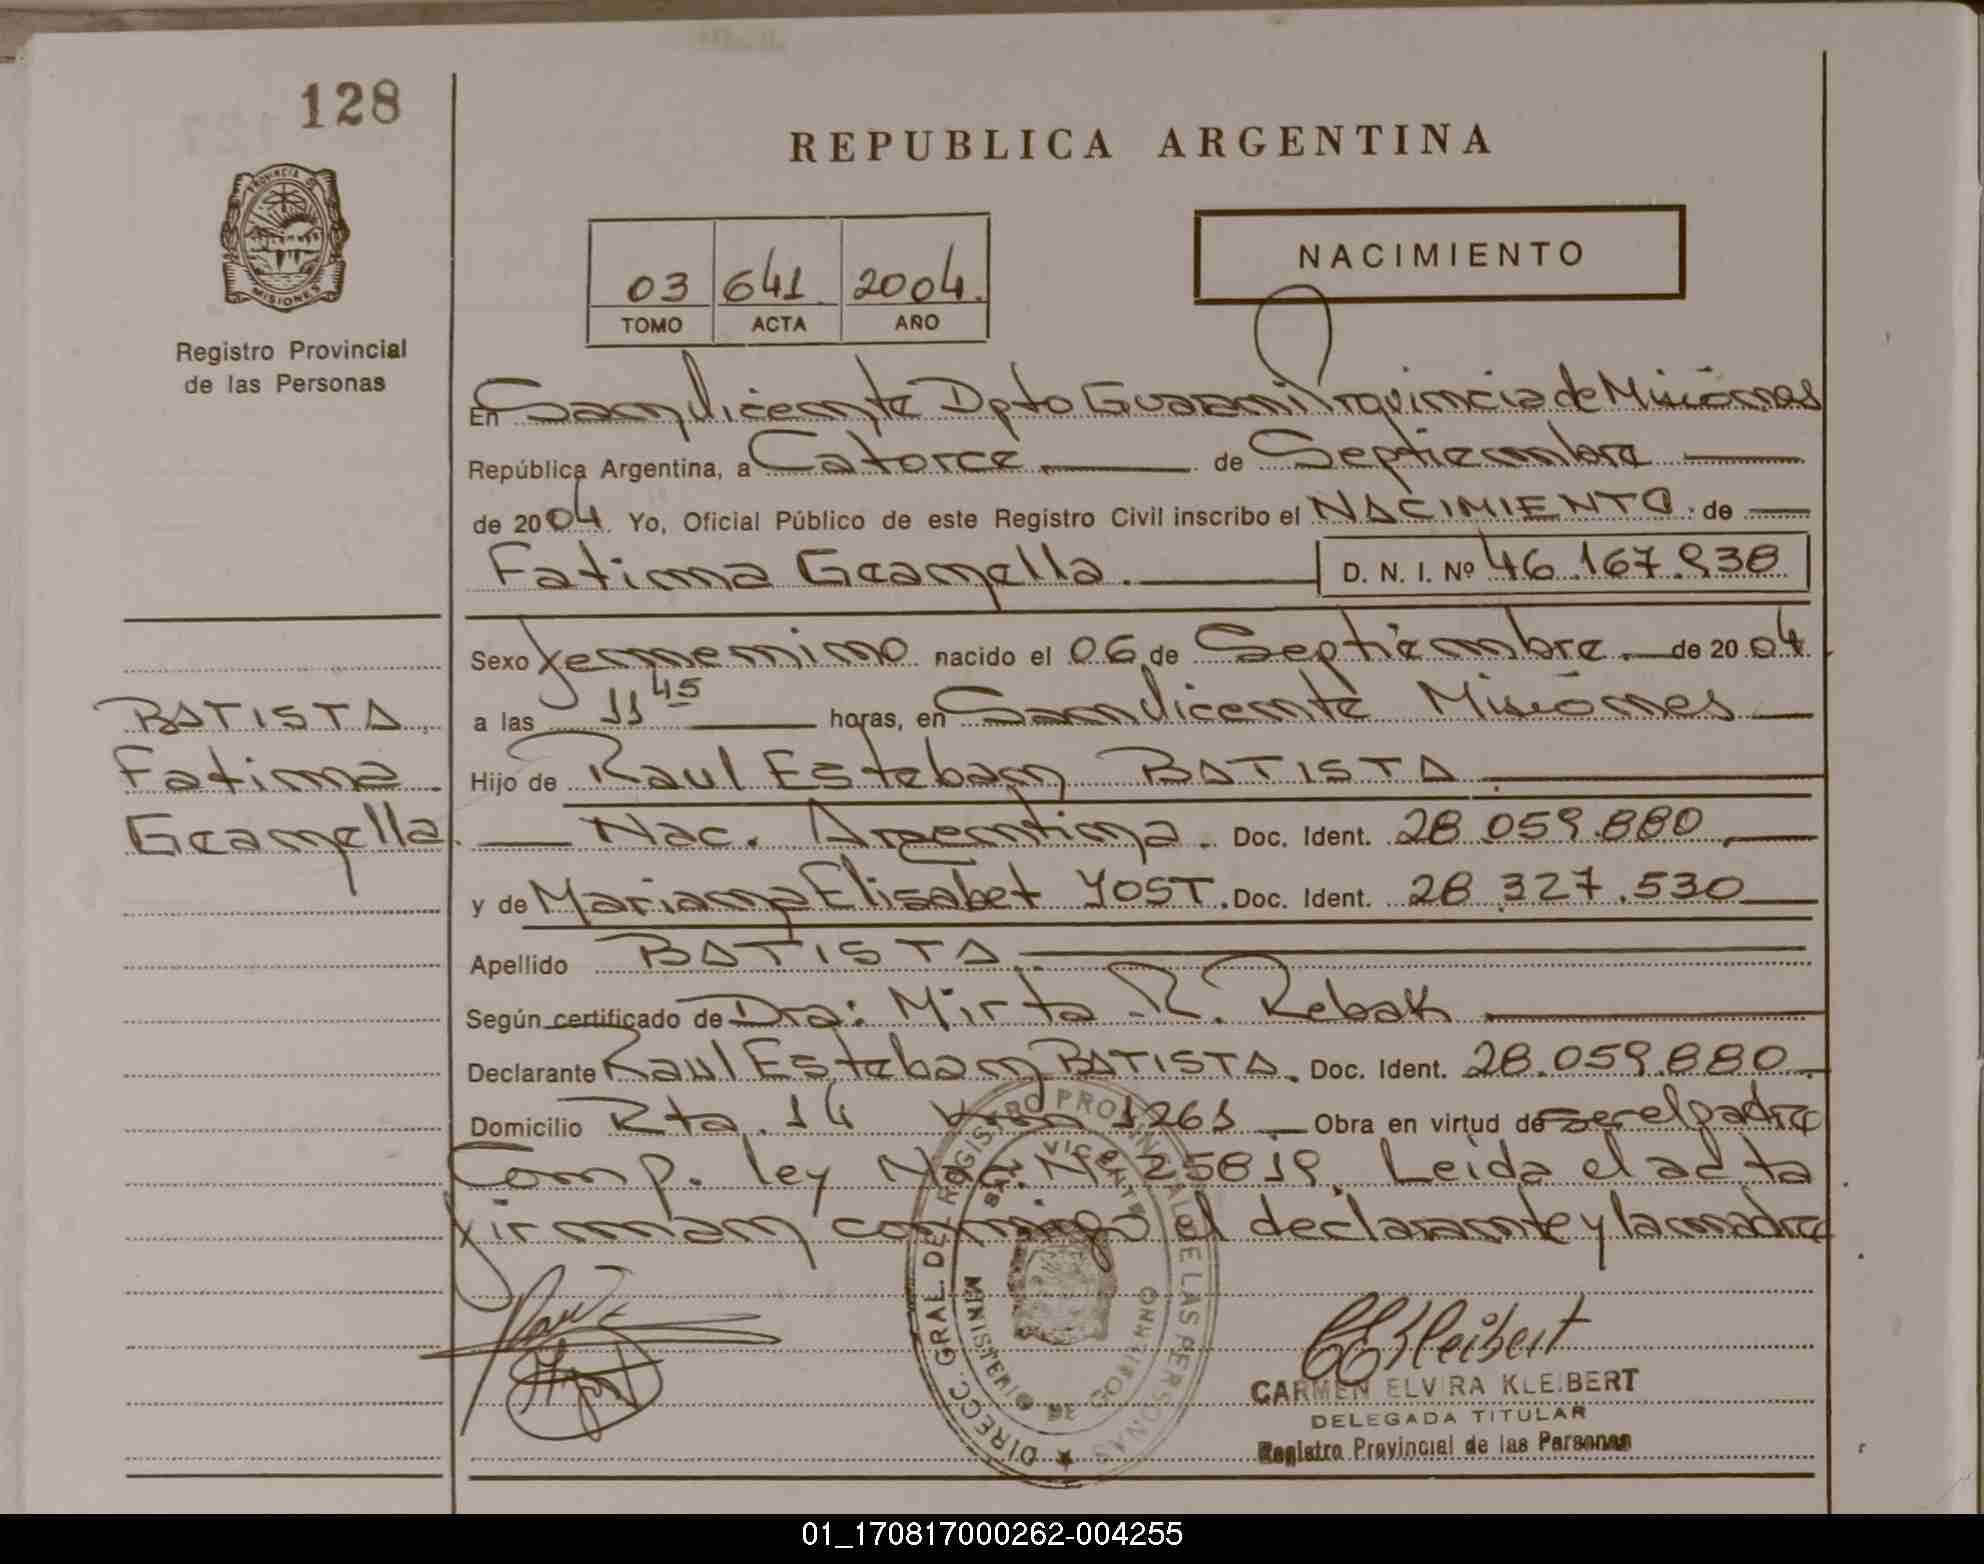 128
REPUBLICA ARGENTINA
PROVINCIA D
MISIONES
Registro Provincial
de las Personas
NACIMIENTO
03 641 2004.
TOMO ACTA AÑO
En San Vicente Dpto Guarani Provincia de Misiones
República Argentina, a Catorce de Septiembre
de 2004. Yo, Oficial Público de este Registro Civil inscribo el NACIMIENTO de
Fatima Geanella. D. N. I. Nº 46.167.938
Sexo femenino nacido el 06 de Septiembre de 2004
a las 11 45 horas, en San Vicente Misiones
Hijo de Raul Esteban BATISTA
Nac. Argentina. Doc. Ident. 28.059.880
y de Mariana Elisabet YOST. Doc. Ident. 28.327.530
Apellido BATISTA
Según certificado de Dra: Mirta R. Rebak
Declarante Raul Esteban BATISTA. Doc. Ident. 28.059.880
Domicilio Rta. 14 Km 1261 Obra en virtud de ser el padre
Comp. ley Nac. Nº 25819. Leida el acta
firman conmigo el declarante y la madre
BATISTA
Fatima
Geanella.
DIRECC. GRAL. DEL REGISTRO PROVINCIAL DE LAS PERSONAS
SAN VICENTE
MINISTERIO DE GOBIERNO
CEKleibert
CARMEN ELVIRA KLEIBERT
DELEGADA TITULAR
Registro Provincial de las Personas
01_170817000262-004255